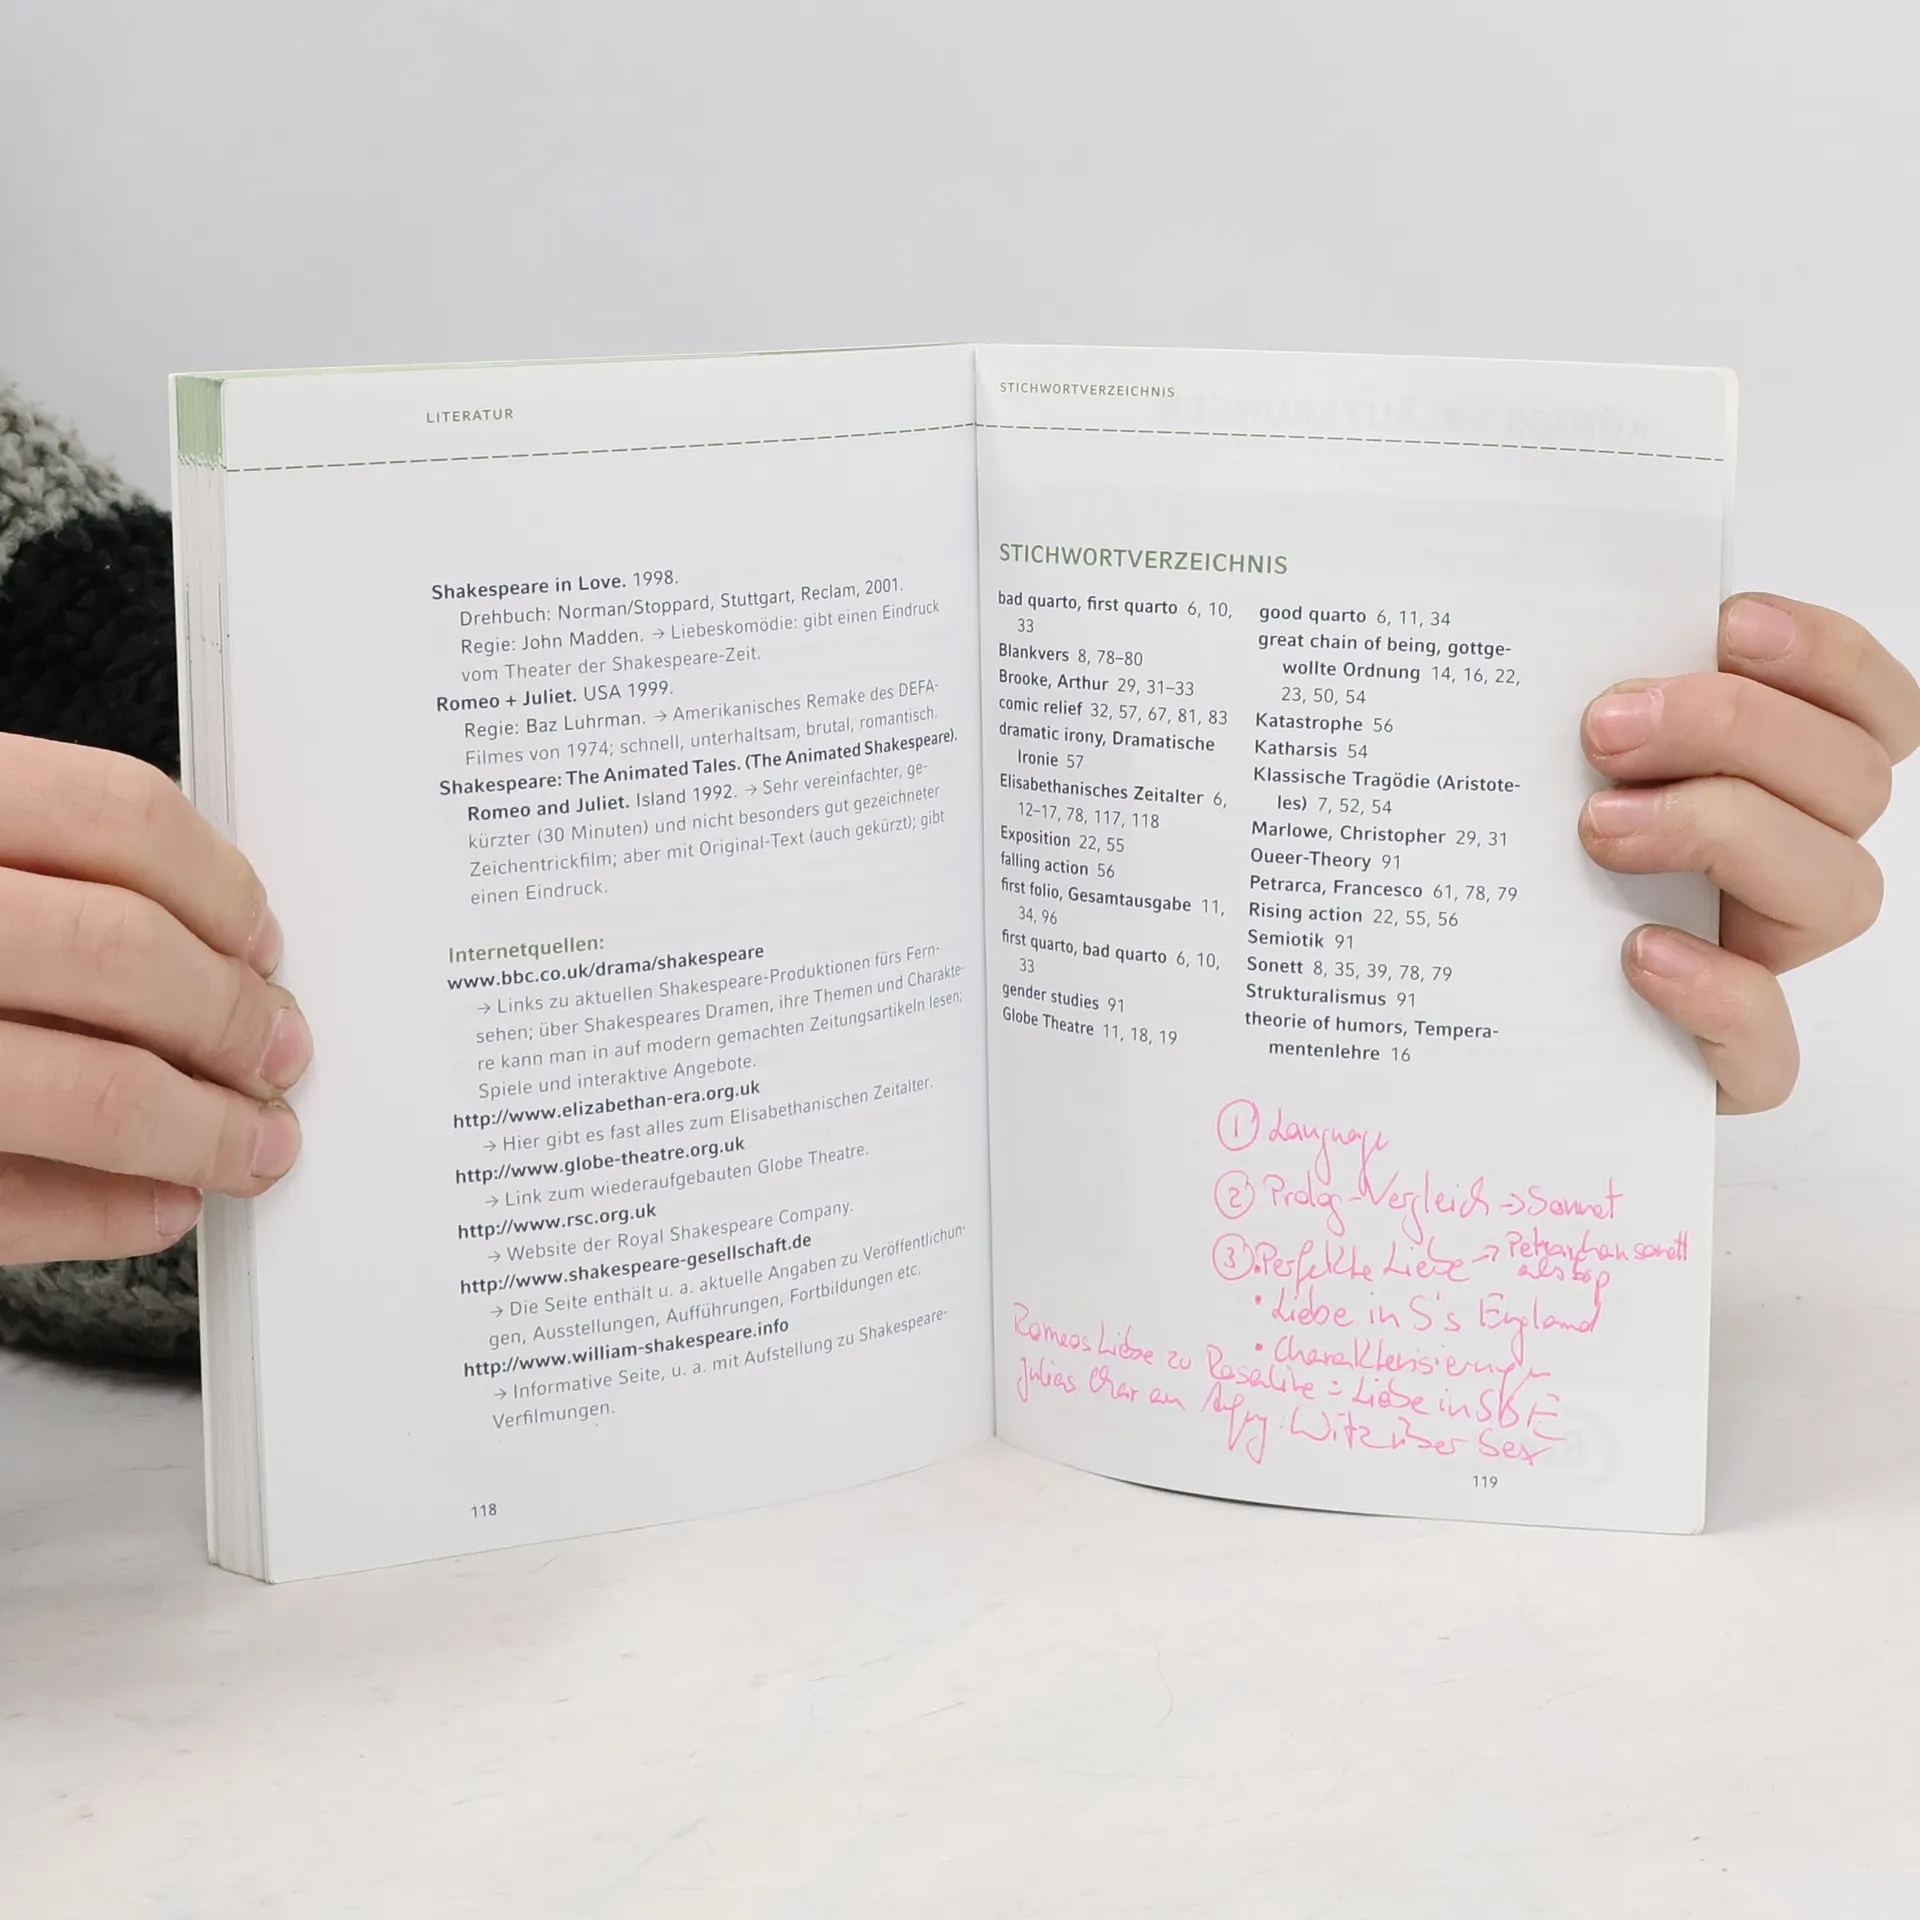 LITERATUR
Shakespeare in Love. 1998.
Drehbuch: Norman/Stoppard, Stuttgart, Reclam, 2001.
Regie: John Madden. → Liebeskomödie: gibt einen Eindruck
vom Theater der Shakespeare-Zeit.
Romeo + Juliet. USA 1999.
Regie: Baz Luhrman. → Amerikanisches Remake des DEFA-
Filmes von 1974; schnell, unterhaltsam, brutal, romantisch.
Shakespeare: The Animated Tales. (The Animated Shakespeare).
Romeo and Juliet. Island 1992. → Sehr vereinfachter, ge-
kürzter (30 Minuten) und nicht besonders gut gezeichneter
Zeichentrickfilm; aber mit Original-Text (auch gekürzt); gibt
einen Eindruck.
Internetquellen:
www.bbc.co.uk/drama/shakespeare
→ Links zu aktuellen Shakespeare-Produktionen fürs Fern-
sehen; über Shakespeares Dramen, ihre Themen und Charakte-
re kann man in auf modern gemachten Zeitungsartikeln lesen;
Spiele und interaktive Angebote.
http://www.elizabethan-era.org.uk
→ Hier gibt es fast alles zum Elisabethanischen Zeitalter.
http://www.globe-theatre.org.uk
→ Link zum wiederaufgebauten Globe Theatre.
http://www.rsc.org.uk
→ Website der Royal Shakespeare Company.
http://www.shakespeare-gesellschaft.de
→ Die Seite enthält u. a. aktuelle Angaben zu Veröffentlichun-
gen, Ausstellungen, Aufführungen, Fortbildungen etc.
http://www.william-shakespeare.info
→ Informative Seite, u. a. mit Aufstellung zu Shakespeare-
Verfilmungen.
118
STICHWORTVERZEICHNIS
STICHWORTVERZEICHNIS
bad quarto, first quarto 6, 10,
33
Blankvers 8, 78–80
Brooke, Arthur 29, 31–33
comic relief 32, 57, 67, 81, 83
dramatic irony, Dramatische
Ironie 57
Elisabethanisches Zeitalter 6,
12–17, 78, 117, 118
Exposition 22, 55
falling action 56
first folio, Gesamtausgabe 11,
34, 96
first quarto, bad quarto 6, 10,
33
gender studies 91
Globe Theatre 11, 18, 19
good quarto 6, 11, 34
great chain of being, gottge-
wollte Ordnung 14, 16, 22,
23, 50, 54
Katastrophe 56
Katharsis 54
Klassische Tragödie (Aristote-
les) 7, 52, 54
Marlowe, Christopher 29, 31
Oueer-Theory 91
Petrarca, Francesco 61, 78, 79
Rising action 22, 55, 56
Semiotik 91
Sonett 8, 35, 39, 78, 79
Strukturalismus 91
theorie of humors, Tempera-
mentenlehre 16
① Language
② Prolog-Vergleich → Sonnet
③ • Perfekte Liebe → Petrarchan sonett
als bsp
• Liebe in S's England
• Charakterisierungen
Romeos Liebe zu Rosaline = Liebe in
Julias Char am Anfang: Witz über Sex
119